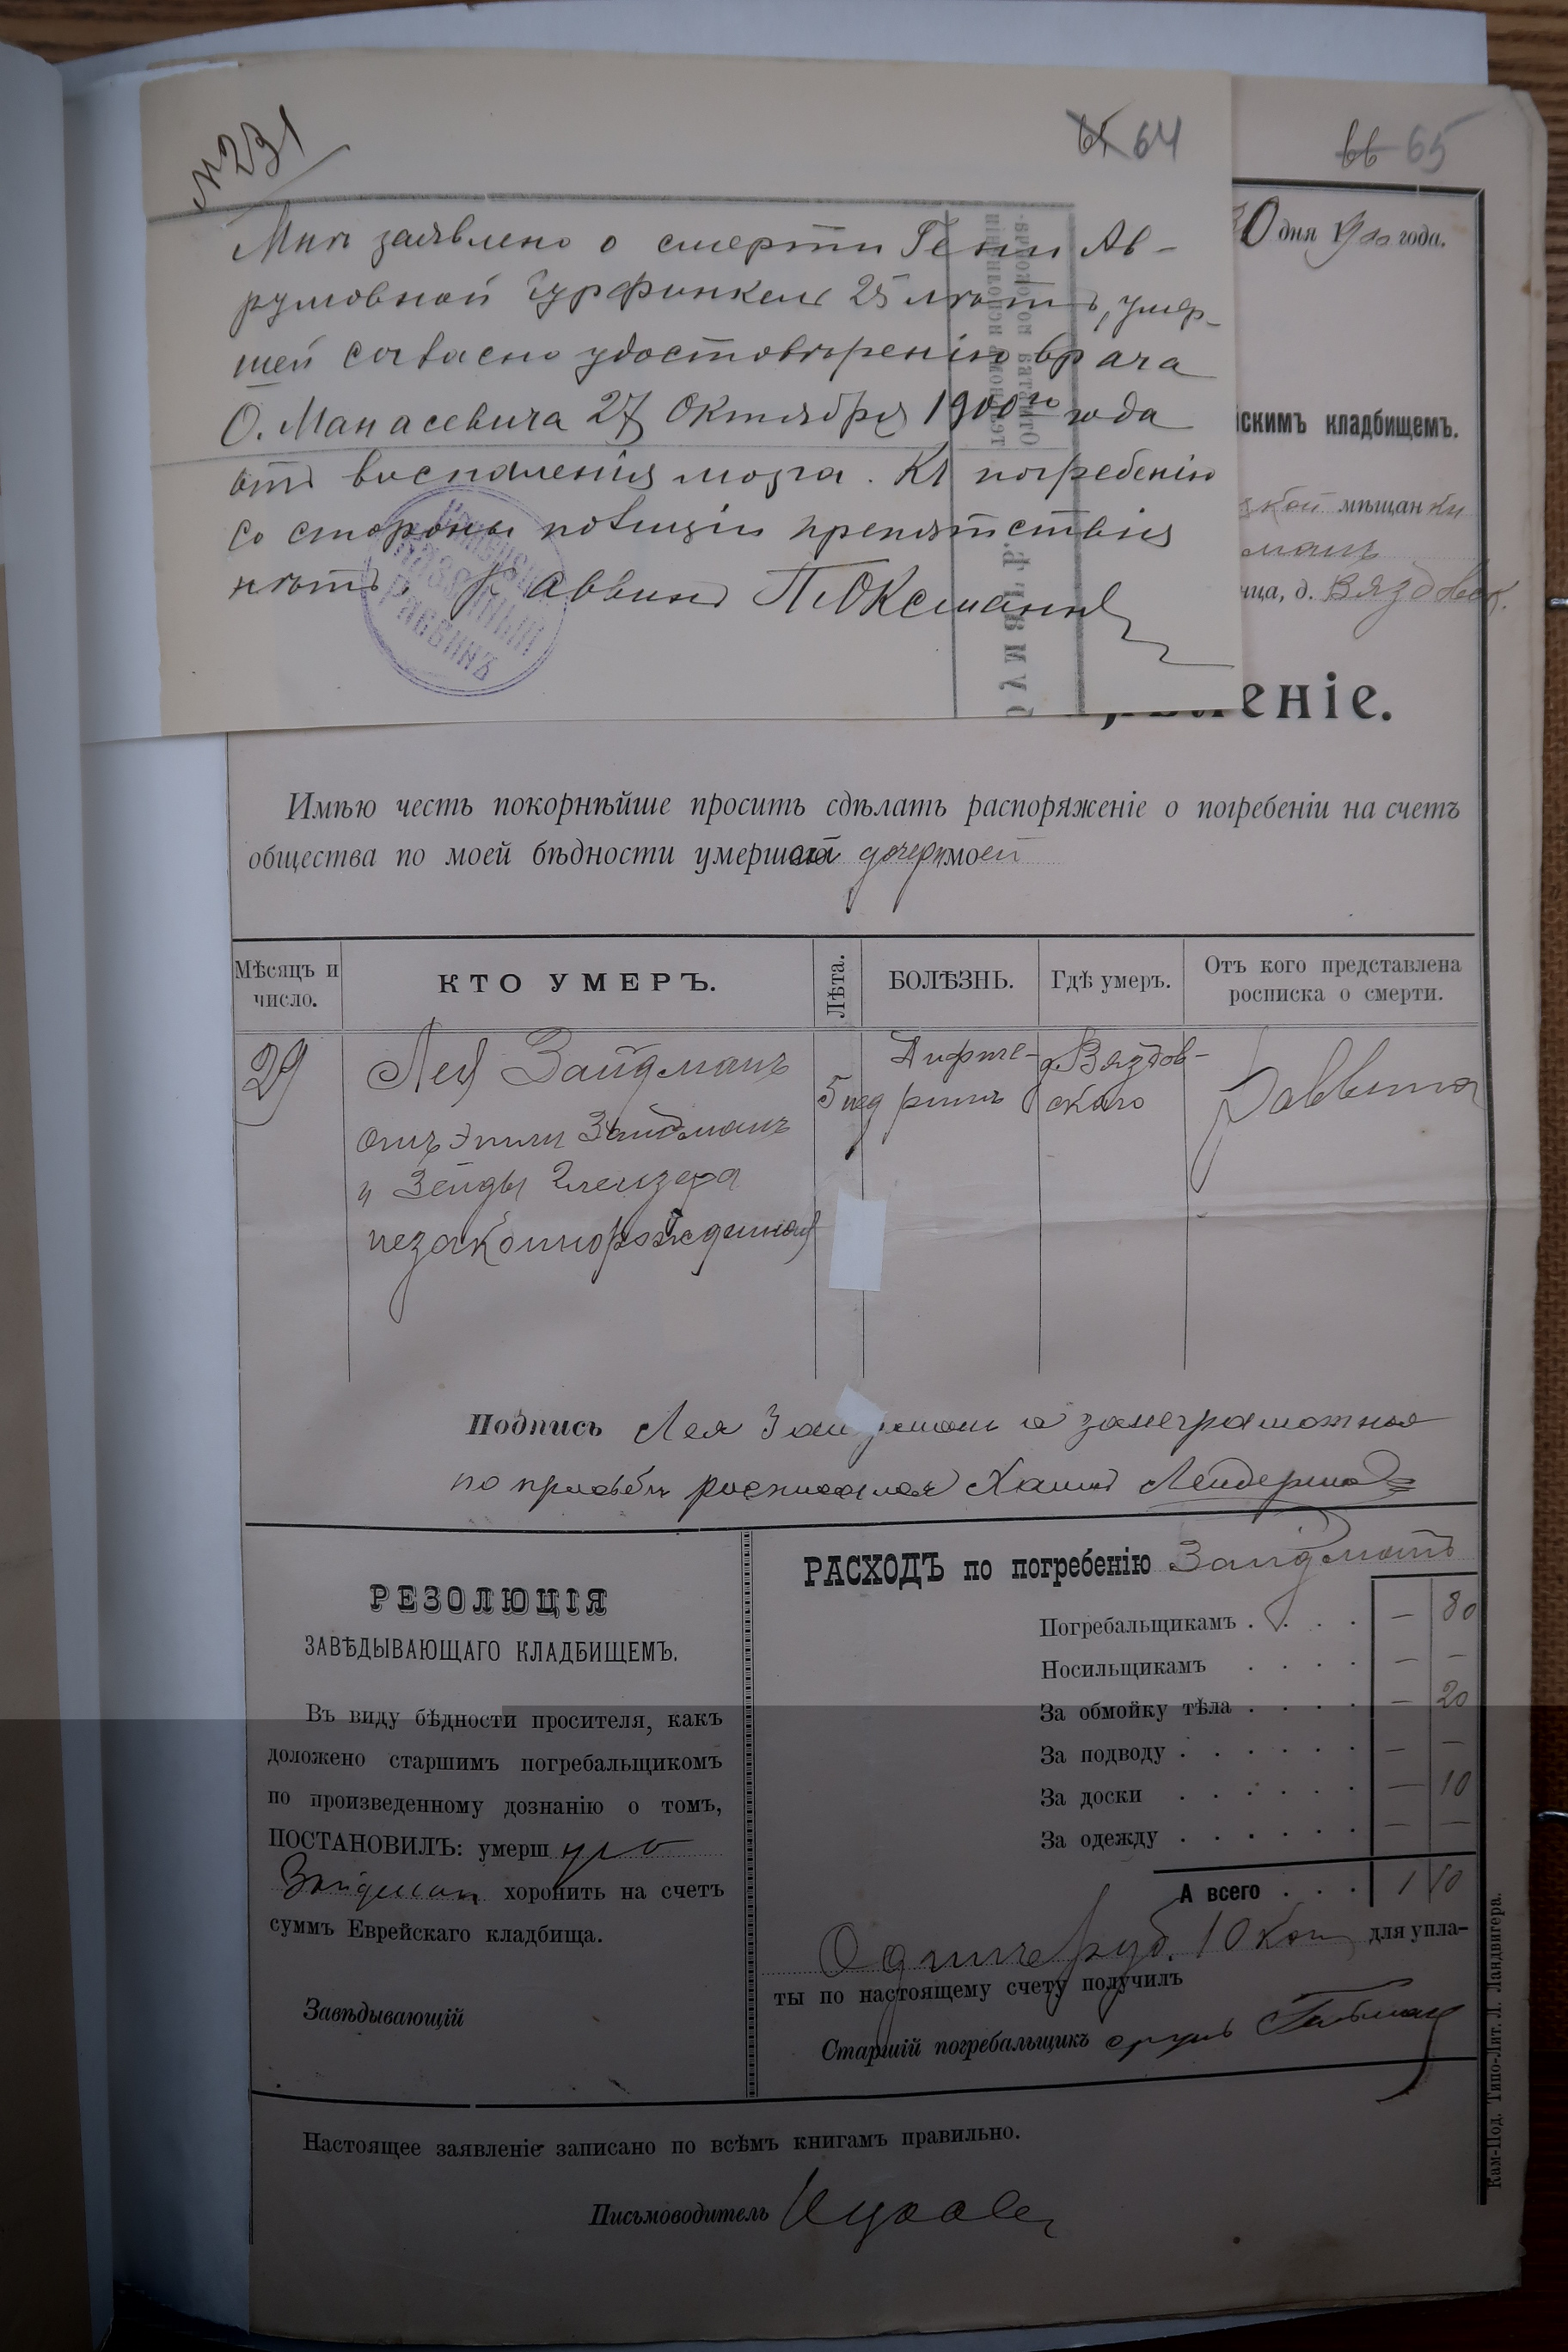 № 231
64
65
Мнѣ заявлено о смерти Гени Ав-
румовной Гурфинкель 25 лѣтъ, умер-
шей согласно удостовѣренію врача
О. Манасевича 27 Октября 1900го года
отъ воспаленія мозга. Къ погребенію
со стороны полиціи препятствія
нѣтъ. Раввинъ П. Оксманъ
КАЗЕННЫЙ
РАВВИНЪ
30 дня 1900 года.
скимъ кладбищемъ.
мѣщанки
манъ
ица, д. Вяздовск.
еніе.
Имѣю честь покорнѣйше просить сдѣлать распоряженіе о погребеніи на счетъ
общества по моей бѣдности умершей дочери моей
Мѣсяцъ и число.
КТО УМЕРЪ.
Лѣта.
БОЛѢЗНЬ.
Гдѣ умеръ.
Отъ кого представлена росписка о смерти.
29
Лея Зайдманъ
отъ Этли Зайдманъ
и Зейды
незаконнорожденная
5 нед
Дифте-
ритъ
д. Вяздов-
скаго
Раввина
Подпись Лея Зайдманъ а за неграмотная
по просьбѣ росписался Хаимъ
РЕЗОЛЮЦІЯ
ЗАВѢДЫВАЮЩАГО КЛАДБИЩЕМЪ.
Въ виду бѣдности просителя, какъ
доложено старшимъ погребальщикомъ
по произведенному дознанію о томъ,
ПОСТАНОВИЛЪ: умерш ую
Зайдман хоронить на счетъ
суммъ Еврейскаго кладбища.
Завѣдывающій
РАСХОДЪ по погребенію Зайдманъ
Погребальщикамъ . . . . — 80
Носильщикамъ . . . . — —
За обмойку тѣла . . . . — 20
За подводу . . . . . . — —
За доски . . . . . . — 10
За одежду . . . . . . — —
А всего . . . 1 10
Одинъ руб. 10 коп для упла-
ты по настоящему счету получилъ
Старшій погребальщикъ
Настоящее заявленіе записано по всѣмъ книгамъ правильно.
Письмоводитель
Кам-Под. Типо-Лит. Л. Ландвигера.